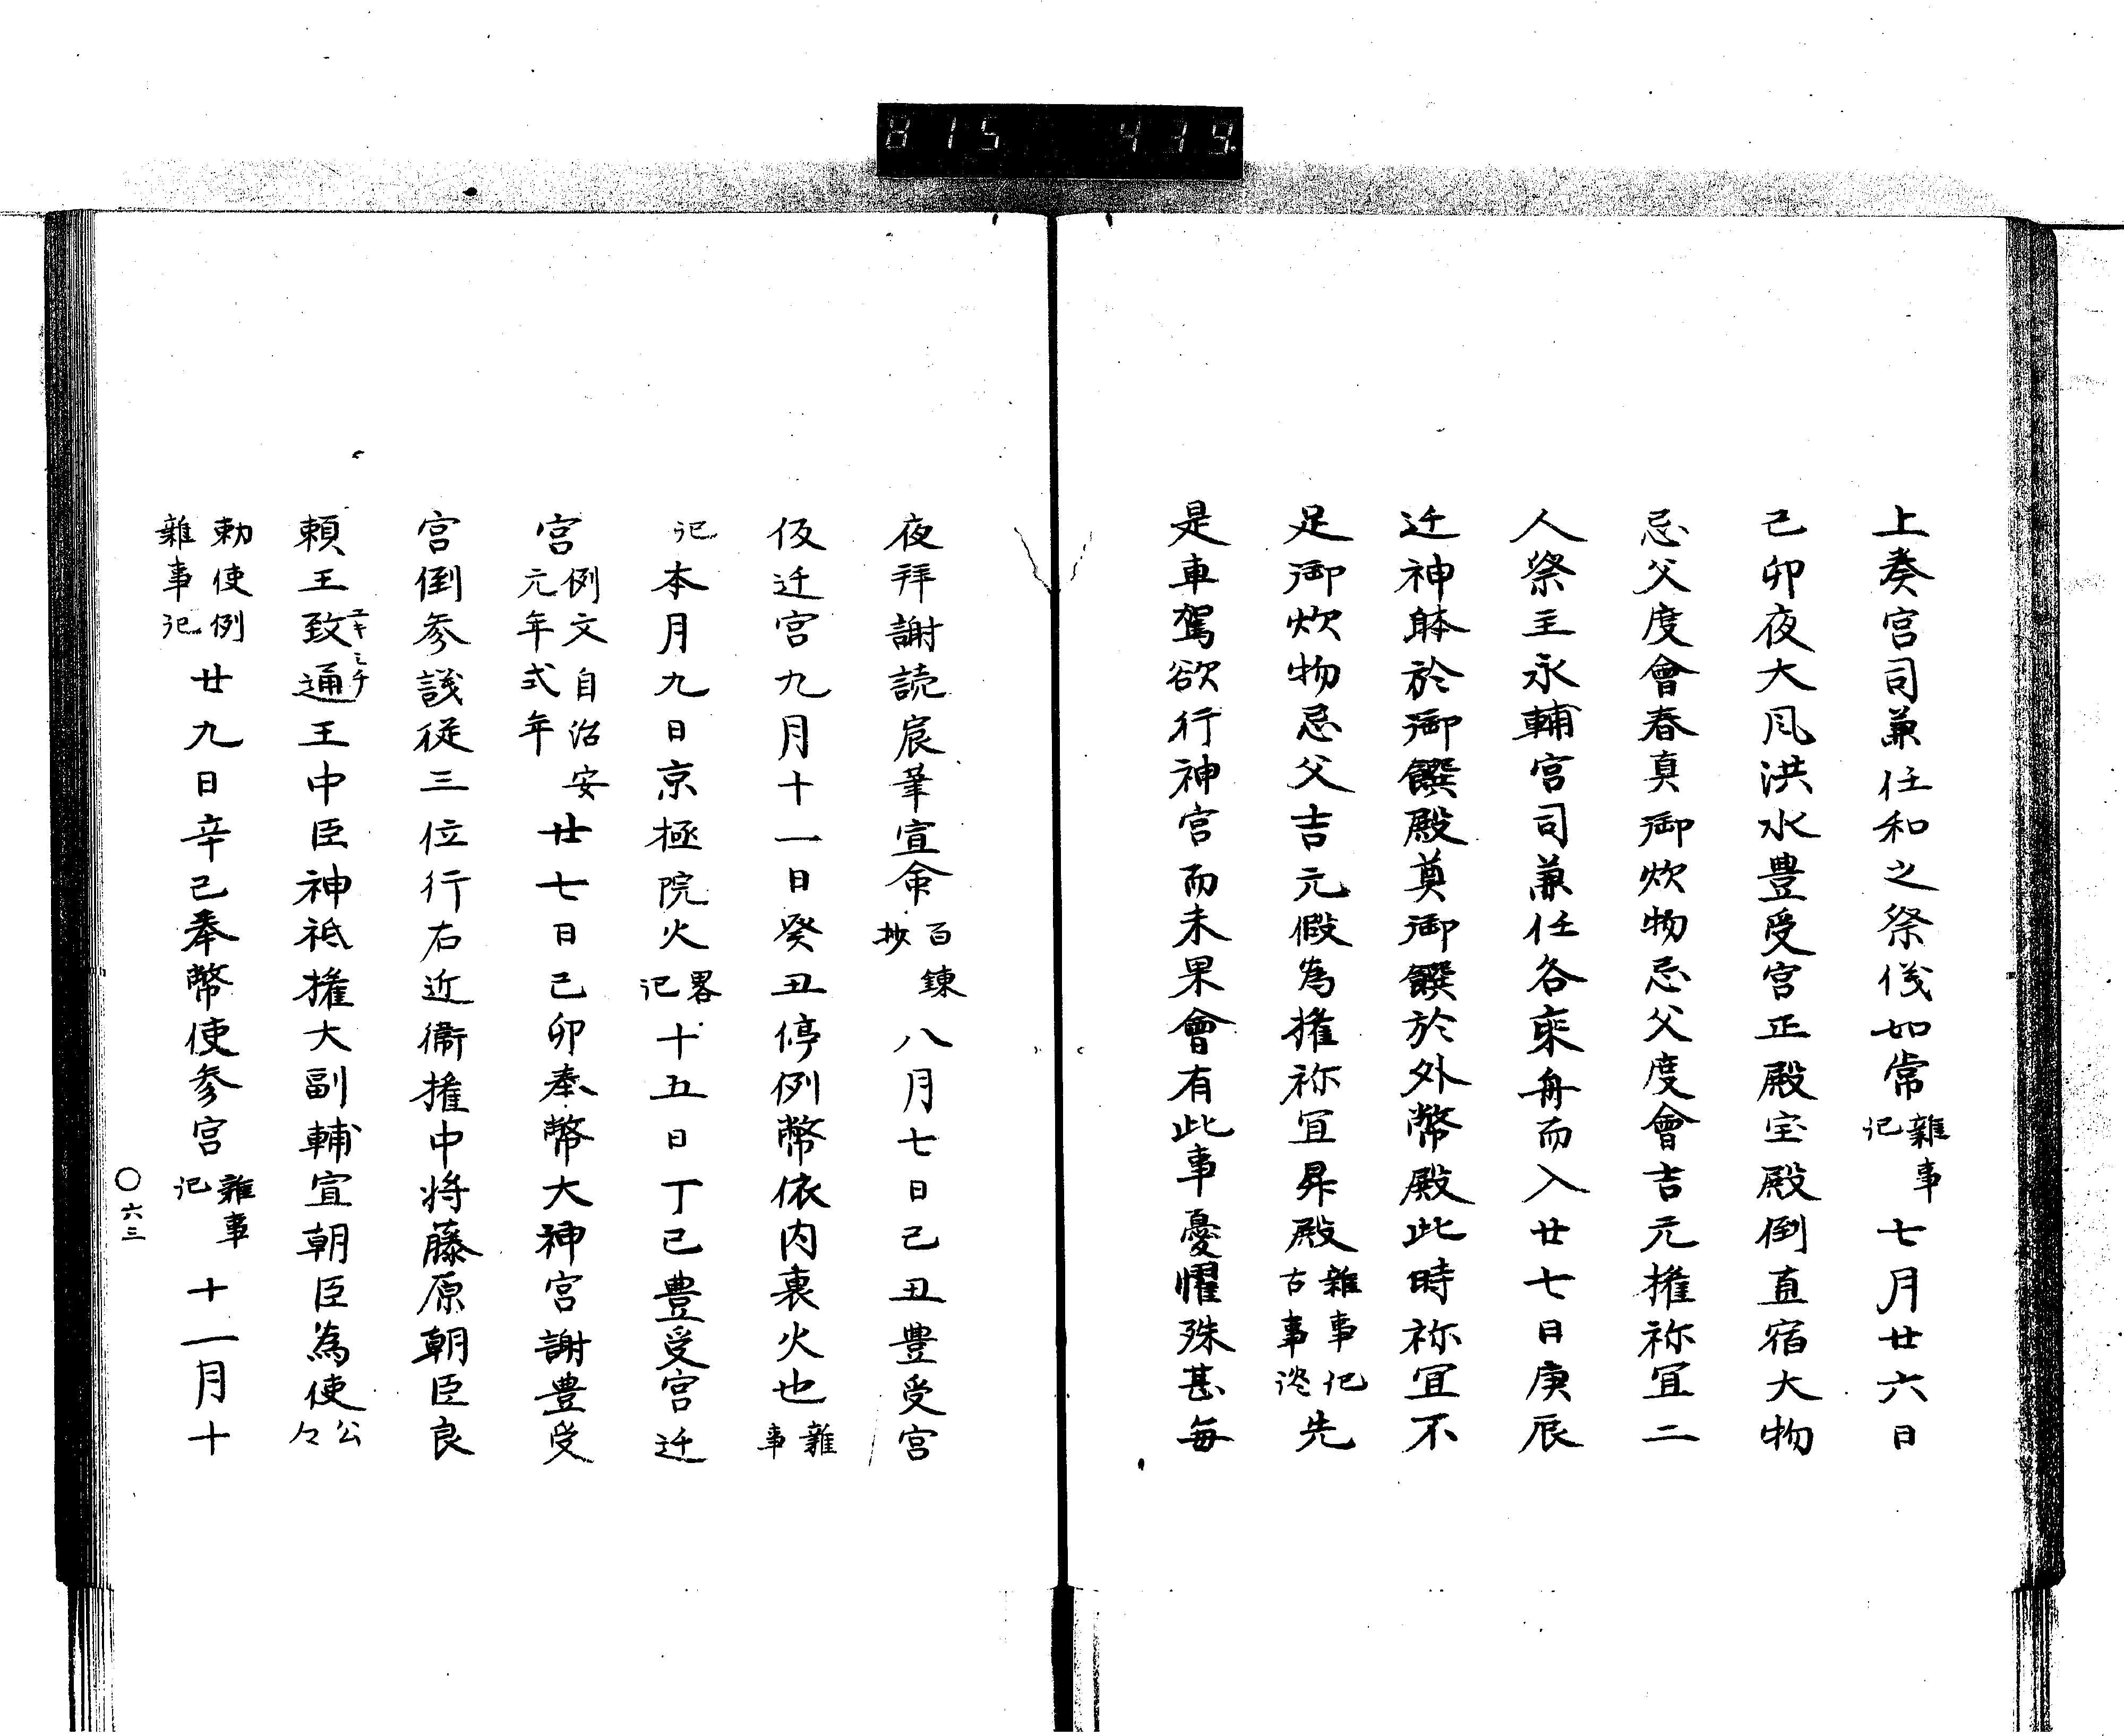 815 439.
上奏宮司兼任和之祭儀如常雜事記七月廿六日
己卯夜大风洪水豊受宮正殿宝殿倒直宿大物
忌父度會春真御炊物忌父度會吉元擁祢宜二
人祭主永輔宮司兼任各乗舟而入廿七日庚辰
迁神躰於御饌殿奠御饌於外幣殿此時祢宜不
足御炊物忌父吉元假為擁祢宜昇殿雜事記古事談先
是車駕欲行神宮而未果會有此事憂懼殊甚每
夜拜謝読宸筆宣命百錬抄八月七日己丑豊受宮
仮迁宮九月十一日癸丑停例幣依内裏火也雜事
記本月九日京極院火畧記十五日丁己豊受宮迁
宮例文自治安元年式年廿七日己卯奉幣大神宮謝豊受
宮倒参議従三位行右近衛擁中将藤原朝臣良
頼王致通王中臣神祇擁大副輔宣朝臣為使公々
勅使例雜事記廿九日辛己奉幣使参宮雜事記十一月十
ユキミチ
〇六三